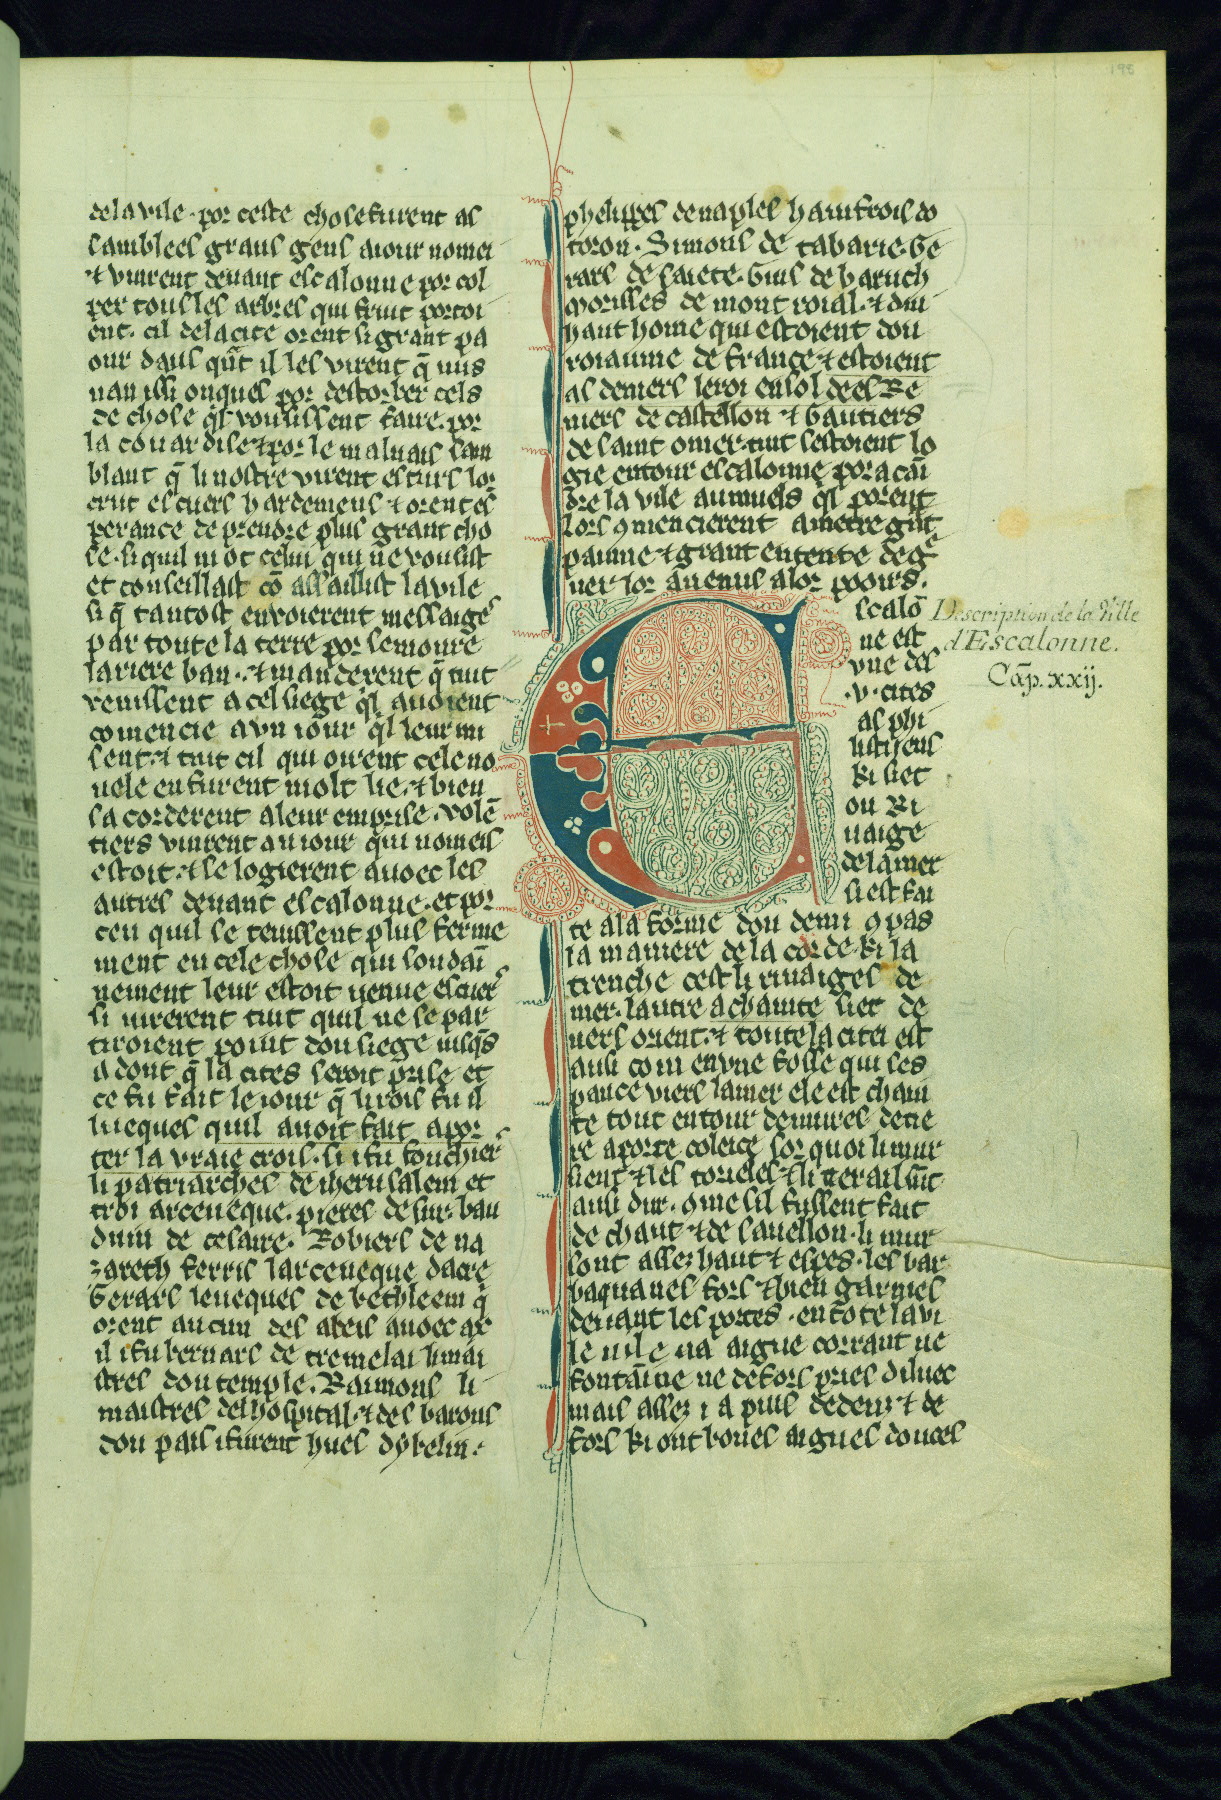 198
dela vile · por ceste chose furent as
samblees grans gens a iour nomei
⁊ vinrent deuant escalonne por col
per tous les arbres qui fruit portoi
ent · cil dela cite orent si grant pa
our dans qu̅t il les virent q̅ nus
nan issi onques por destorber cels
de chose q̅l voussissent faire · por
la couardise ⁊ por le maluais sam
blant q̅ li nostre virent es turs lor
crut es cuers hardemens ⁊ orent es
perance de prendre plus grant cho
se · si quil ni ot celui qui ne voulist
et conseillast co̅ assaillist la vile
si q̅ tantost enuoierent messaigẽs
par toute la terre por semonre
lariere ban · ⁊ manderent q̅ tuit
venissent a cel siege q̅l auoient
comencie a vn iour q̅l leur mi
sent · ⁊ tuit cil qui oirent cele no
uele en furent molt lie · ⁊ bien
sa corderent a leur emprise · vole̅
tiers vinrent au iour qui nomeis
estoit · ⁊ se logierent auoec les
autres deuant escalonne · et por
ceu quil se tenissent plus ferme
ment en cele chose qui soudai̅
nement leur estoit uenue es cuers
si iurerent tuit quil ne se par
tiroient point dou siege iusq̅s
a dont q̅ la cites seroit prise et
ce fu fait le iour q̅ li rois fu il
lueques quil auoit fait apor
ter la vraie crois · si i fu fouchiers
li patriarches de iherusalem et
troi arceueque · pieres de sur · bau
duin de cesaire · Robiers de na
zareth ferris larceueque dacre
Gerars leueques de bethleem q̅
orent aucun des abeis auoec ax
il i fu bernars de tremelai li mai
stres dou temple · Raimons li
maistres del hospital · ⁊ des barons
dou pais i furent hues dybelin ·
phelippes de naples hainfrois do
toron · Simons de tabarie · Ge
rars de saiete · Guis de baruch
Morisses de mont roial · ⁊ dui
haut home qui estoient dou
roiaume de france ⁊ estoient
as deniers le roi en sol dees Re
niers de castellon ⁊ Gautiers
de saint omer · tuit sestoient lo
gie entour escalonne por a cai̅
dre la vile au muels q̅l porent
Lors 9mencierent a metre gra̅t
painne ⁊ grant entente de gẽ
uer lor anemis a lor poours ·
Escalo̅
ne est
vne des
· v · cites
as phi
listiens
ki siet
ou Ri
uaige
de la mer
si est fai
te a la forme dou demi 9pas
la maniere de la corde ki la
trenche cest li riuaiges de
mer · lautre achainte siet de
uers orient · ⁊ toute la citei est
ausi com en vne fosse qui ses
pance viers la mer ele est chain
te tout entour de mures de tie
re a porte coleice sor quoi li mur
sient ⁊ les torieles ⁊ li terail su̅t
ausi dur · 9me sil fussent fait
de chaut ⁊ de sauellon · li mur
sont assez haut ⁊ espes · les bar
baquanes fors ⁊ bien garnies
deuant les portes · en to̅te la vi
le nile na aigue corrant ne
fontai̅ne ne defors pries diluec
mais assez i a puis dedenz ⁊ de
fors ki ont boues aigues douces
Description de la Ville
d'Escalonne.
Cap̃. xxij.